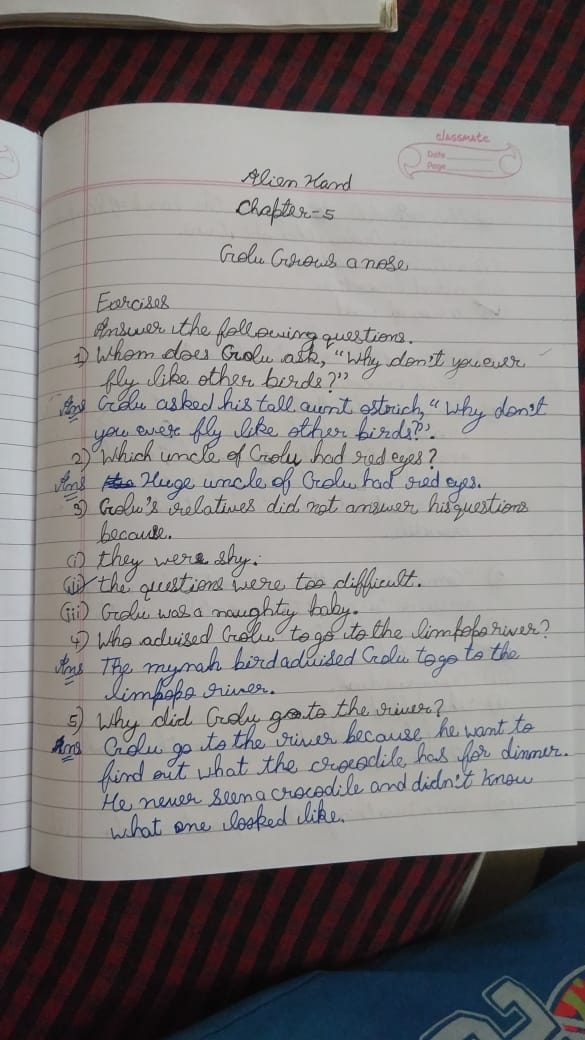 classmate
Date
Page
Alien Hand
Chapter-5
Golu Grows a nose
Exercises
Answer the following questions.
1) Whom does Golu ask, "Why don't you ever
fly like other birds?"
Ans Golu asked his tall aunt ostrich, "Why don't
you ever fly like other birds?".
2) Which uncle of Golu had red eyes?
Ans Huge uncle of Golu had red eyes.
3) Golu's relatives did not answer his questions
because.
(i) they were shy.
(ii) the questions were too difficult.
(iii) Golu was a naughty baby.
4) Who advised Golu to go to the limpopo river?
Ans The mynah bird advised Golu to go to the
limpopo river.
5) Why did Golu go to the river?
Ans Golu go to the river because he want to
find out what the crocodile has for dinner.
He never seen a crocodile and didn't know
what one looked like.